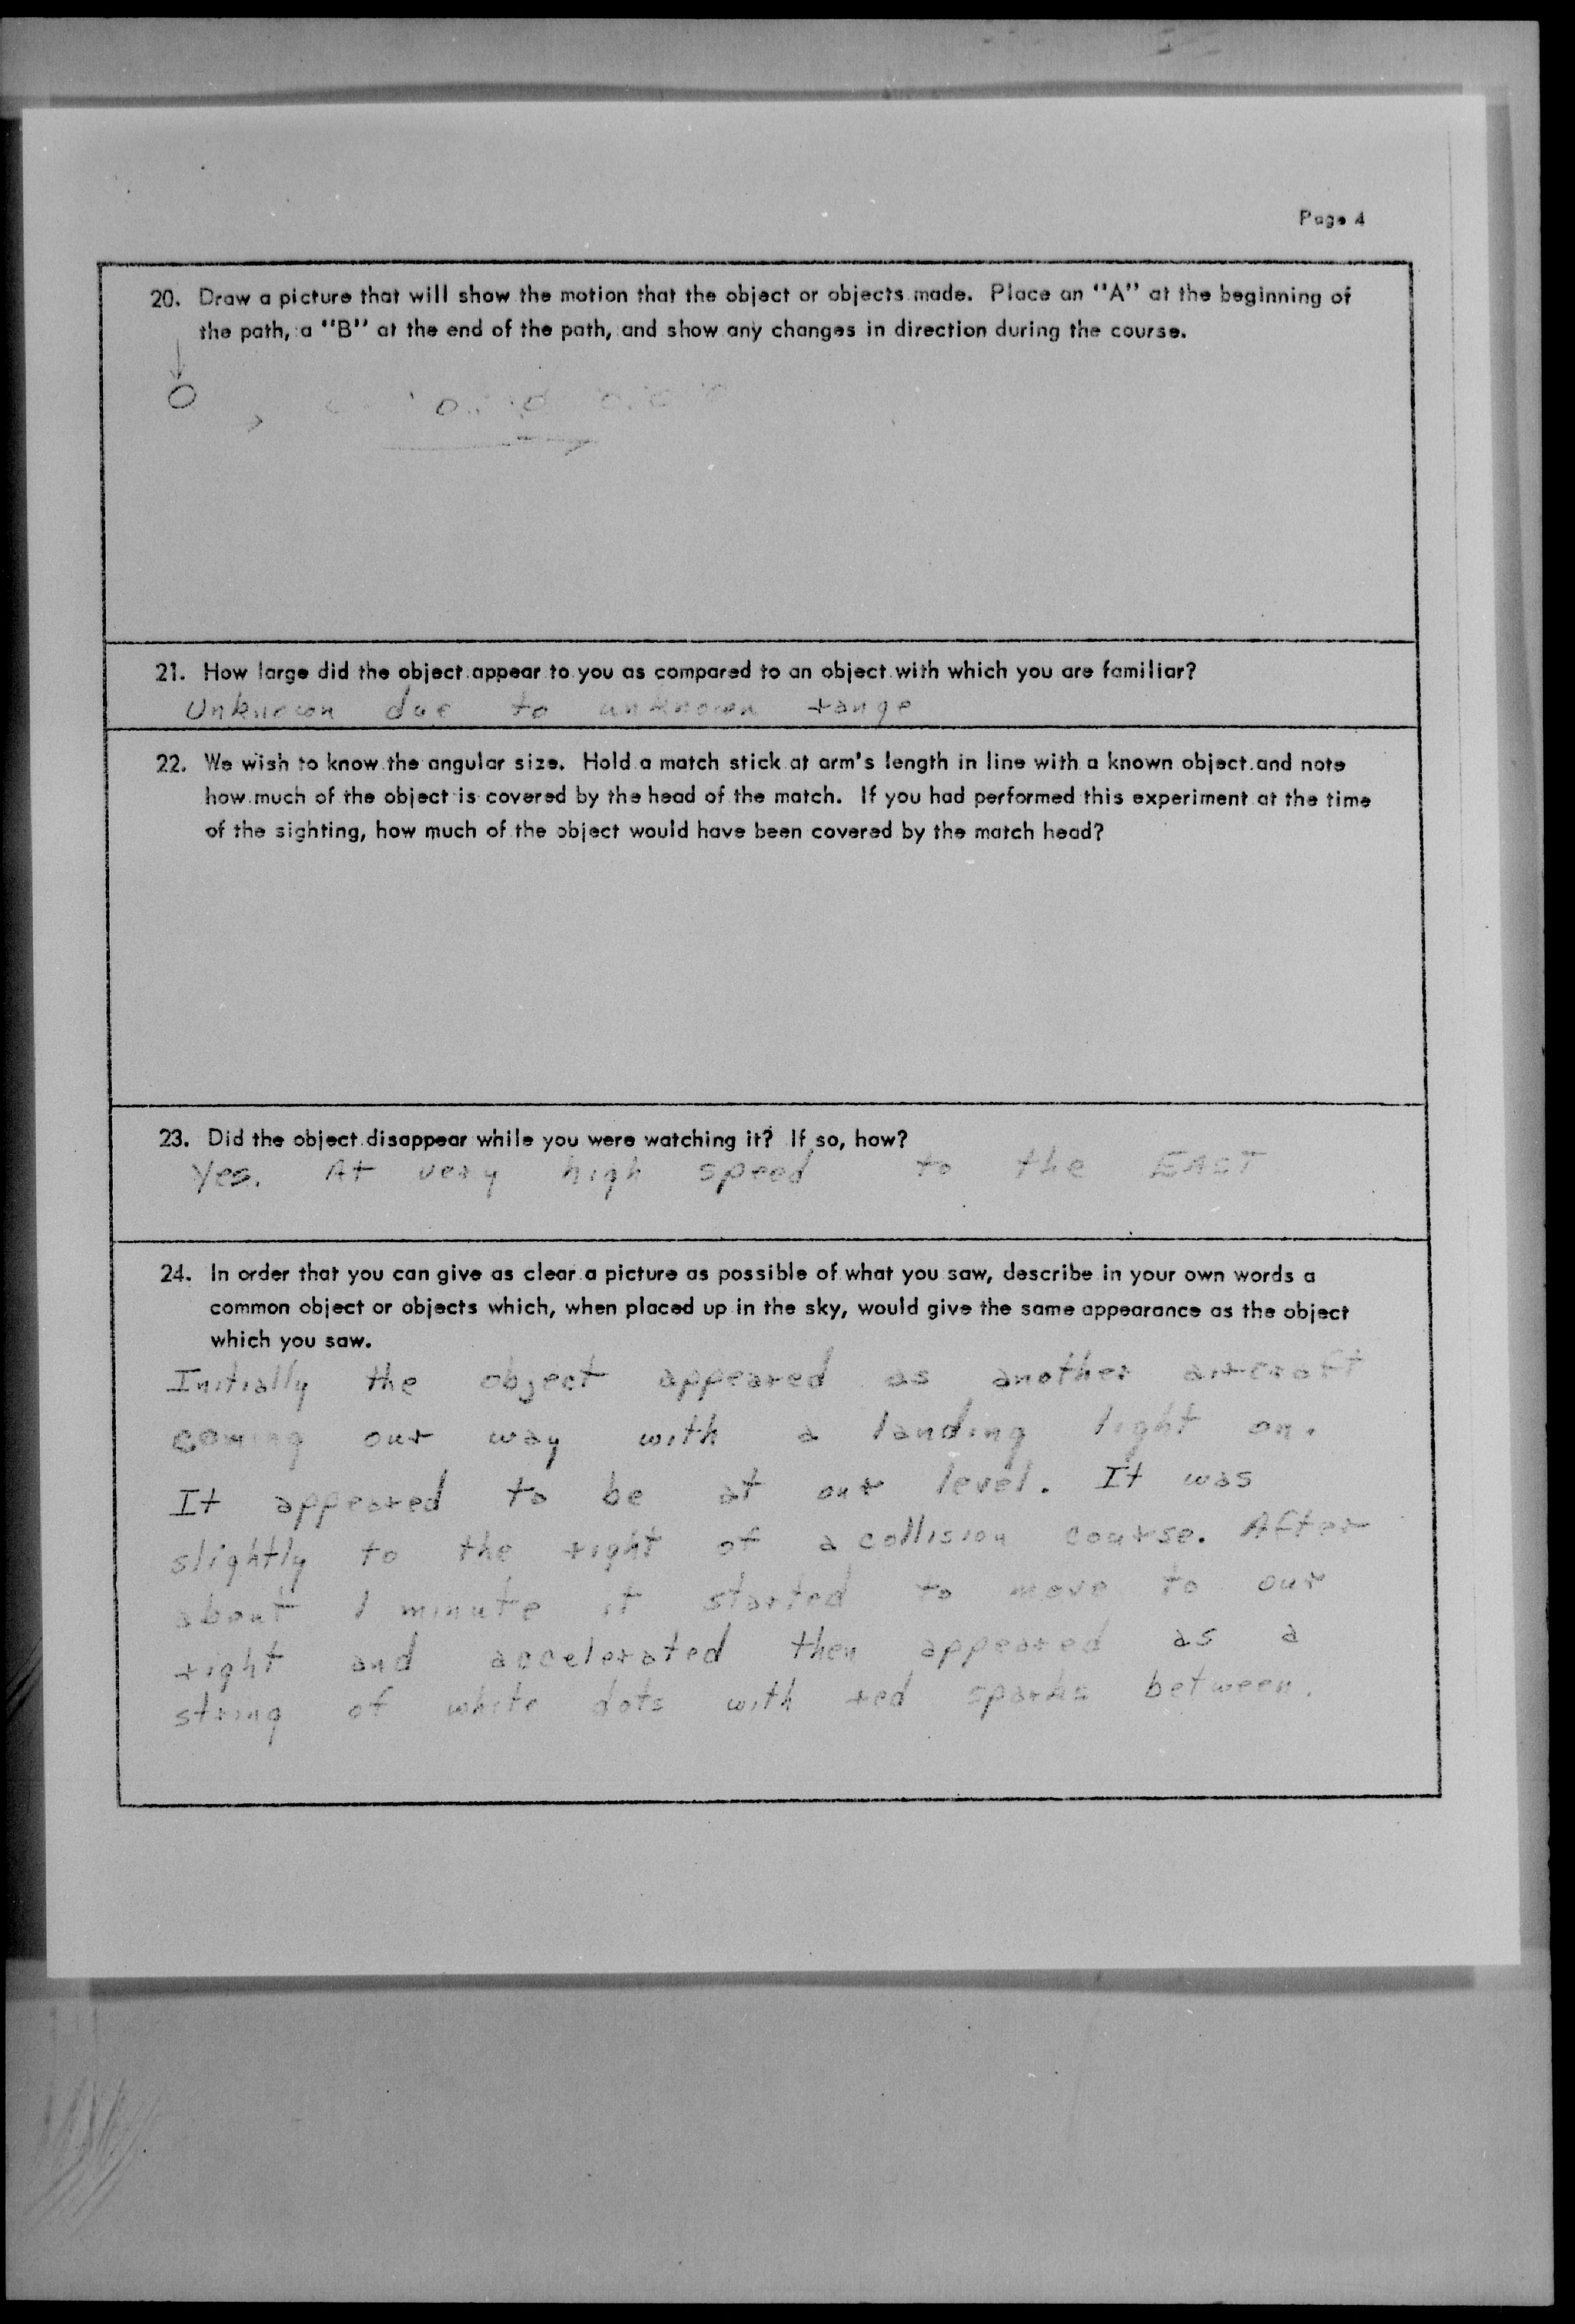 Page 4
20. Draw a picture that will show the motion that the object or objects made. Place an "A" at the beginning of
the path, a "B" at the end of the path, and show any changes in direction during the course.
21. How large did the object appear to you as compared to an object with which you are familiar?
Unknown due to unknown range
22. We wish to know the angular size. Hold a match stick at arm's length in line with a known object and note
how much of the object is covered by the head of the match. If you had performed this experiment at the time
of the sighting, how much of the object would have been covered by the match head?
23. Did the object disappear while you were watching it? If so, how?
Yes. At very high speed to the EAST
24. In order that you can give as clear a picture as possible of what you saw, describe in your own words a
common object or objects which, when placed up in the sky, would give the same appearance as the object
which you saw.
Initially the object appeared as another aircraft
coming our way with a landing light on.
It appeared to be at our level. It was
slightly to the right of a collision course. After
about 1 minute it started to move to our
right and accelerated then appeared as a
string of white dots with red sparks between.